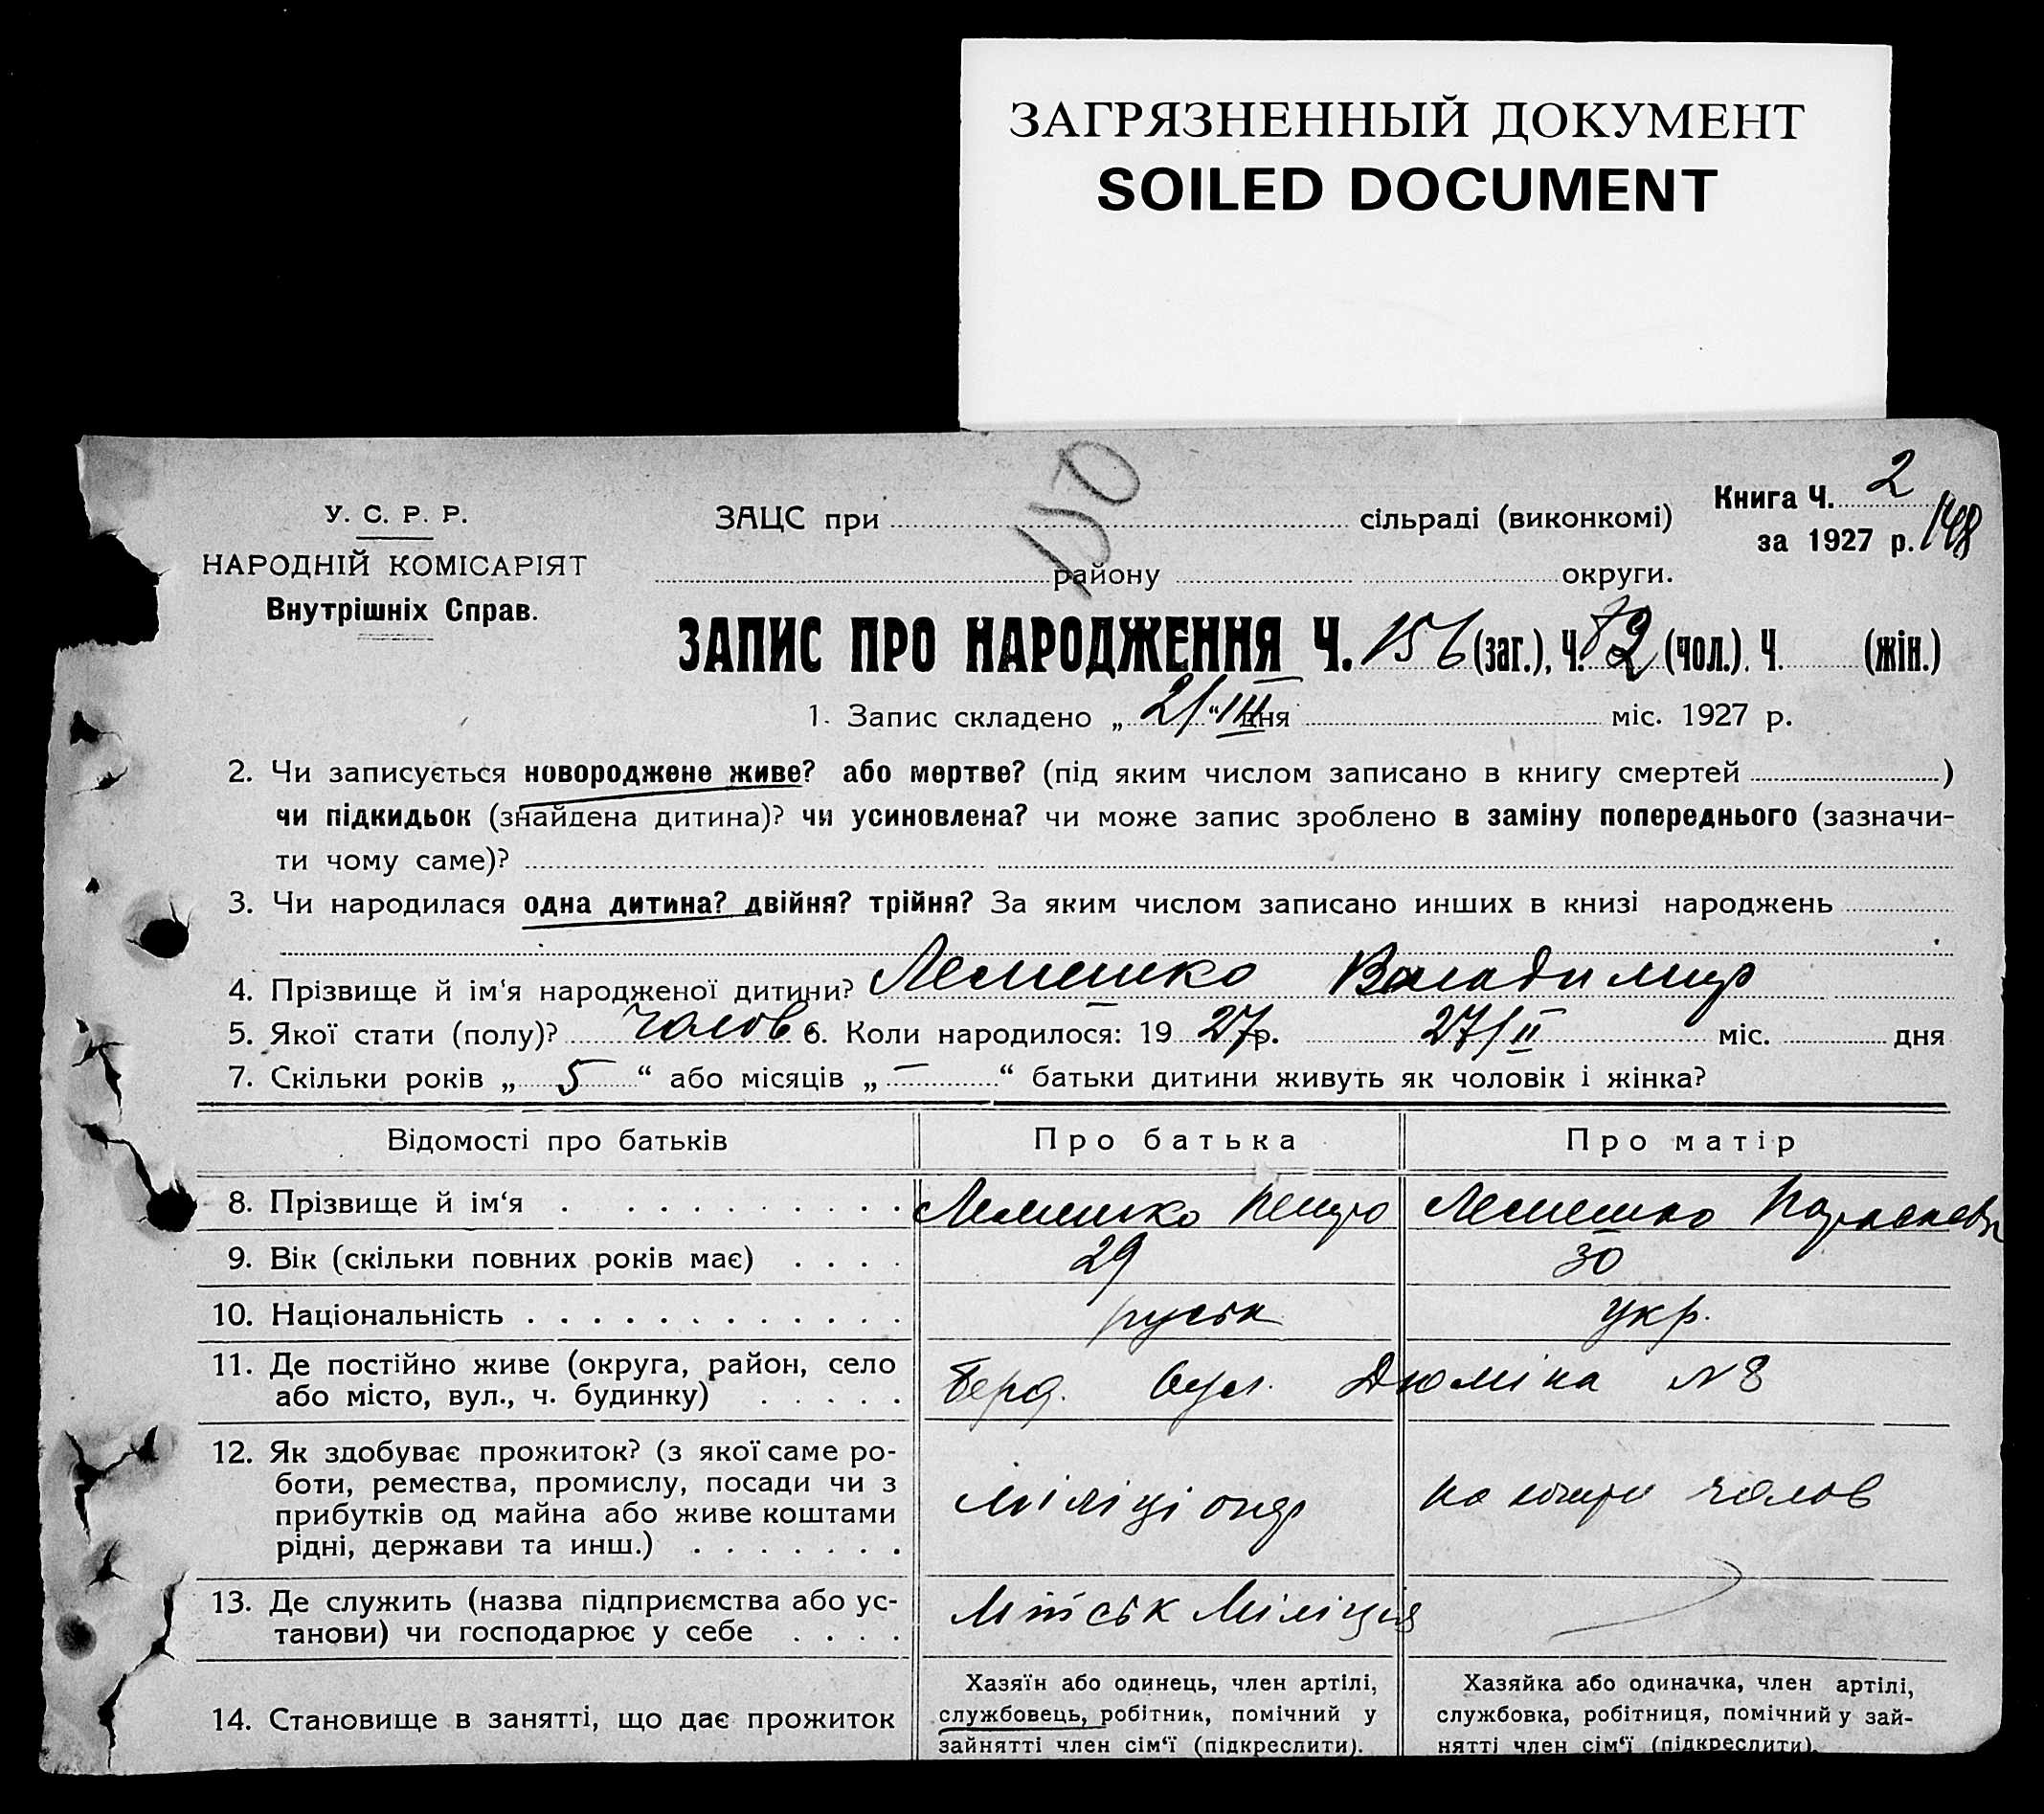 ЗАГРЯЗНЕННЫЙ ДОКУМЕНТ
SOILED DOCUMENT
У. С. Р. Р.
НАРОДНІЙ КОМІСАРІЯТ
Внутрішніх Справ.
ЗАЦС при сільраді (виконкомі)
району округи.
Книга Ч. 2
за 1927 р. 148
ЗАПИС ПРО НАРОДЖЕННЯ Ч. 156 (заг.), Ч. 82 (чол.). Ч. (жін.)
1. Запис складено „ 21/III “ дня міс. 1927 р.
2. Чи записується новороджене живе? або мертве? (під яким числом записано в книгу смертей )
чи підкидьок (знайдена дитина)? чи усиновлена? чи може запис зроблено в заміну попереднього (зазначи-
ти чому саме)?
3. Чи народилася одна дитина? двійня? трійня? За яким числом записано инших в книзі народжень
4. Прізвище й ім‘я народженої дитини? Лемешко Владимир
5. Якої стати (полу)? чолов 6. Коли народилося: 19 27 р. 27/II міс. дня
7. Скільки років „ 5 “ або місяців „ — “ батьки дитини живуть як чоловік і жінка?
Відомості про батьків Про батька Про матір
8. Прізвище й ім‘я Лемешко Петро Лемешко
9. Вік (скільки повних років має) 29 30
10. Національність руськ укр.
11. Де постійно живе (округа, район, село
або місто, вул., ч. будинку) Берд. вул. Дюміна N 8
12. Як здобуває прожиток? (з якої саме ро-
боти, ремества, промислу, посади чи з
прибутків од майна або живе коштами
рідні, держави та инш.) міліціонер на кошти чолов
13. Де служить (назва підприємства або ус-
танови) чи господарює у себе Міськ Міліція
14. Становище в занятті, що дає прожиток
Хазяїн або одинець, член артілі,
службовець, робітник, помічний у
зайнятті член сім‘ї (підкреслити).
Хазяйка або одиначка, член артілі,
службовка, робітниця, помічний у зай-
нятті член сім‘ї (підкреслити).